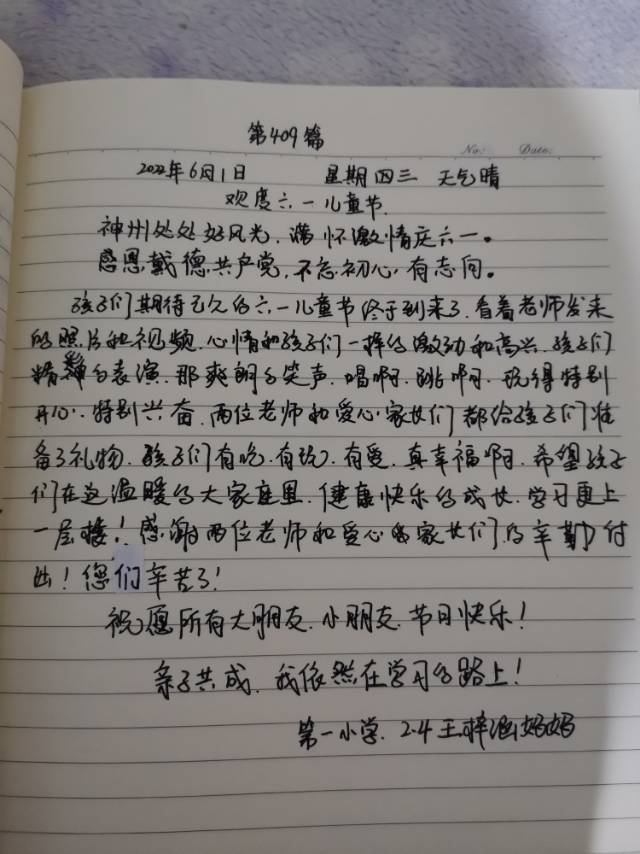 第409篇
No: Date:
2022年6月1日 星期四三 天气晴
欢度六一儿童节
神州处处好风光，满怀激情庆六一。
感恩戴德共产党，不忘初心，有志向。
孩子们期待已久的六一儿童节终于到来了，看着老师发来
的照片和视频，心情和孩子们一样的激动和高兴，孩子们
精彩的表演，那爽朗的笑声，唱啊，跳啊，玩得特别
开心，特别兴奋，两位老师和爱心家长们都给孩子们准
备了礼物，孩子们有吃，有玩，有爱，真幸福啊，希望孩子
们在这温暖的大家庭里，健康快乐的成长，学习更上
一层楼！感谢两位老师和爱心的家长们的辛勤付
出！您们辛苦了！
祝愿所有大朋友，小朋友，节日快乐！
亲子共成，我依然在学习的路上！
第一小学，2.4王梓涵妈妈